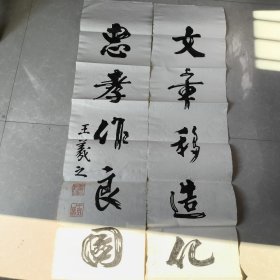 文章移造化
忠孝作良图
王羲之